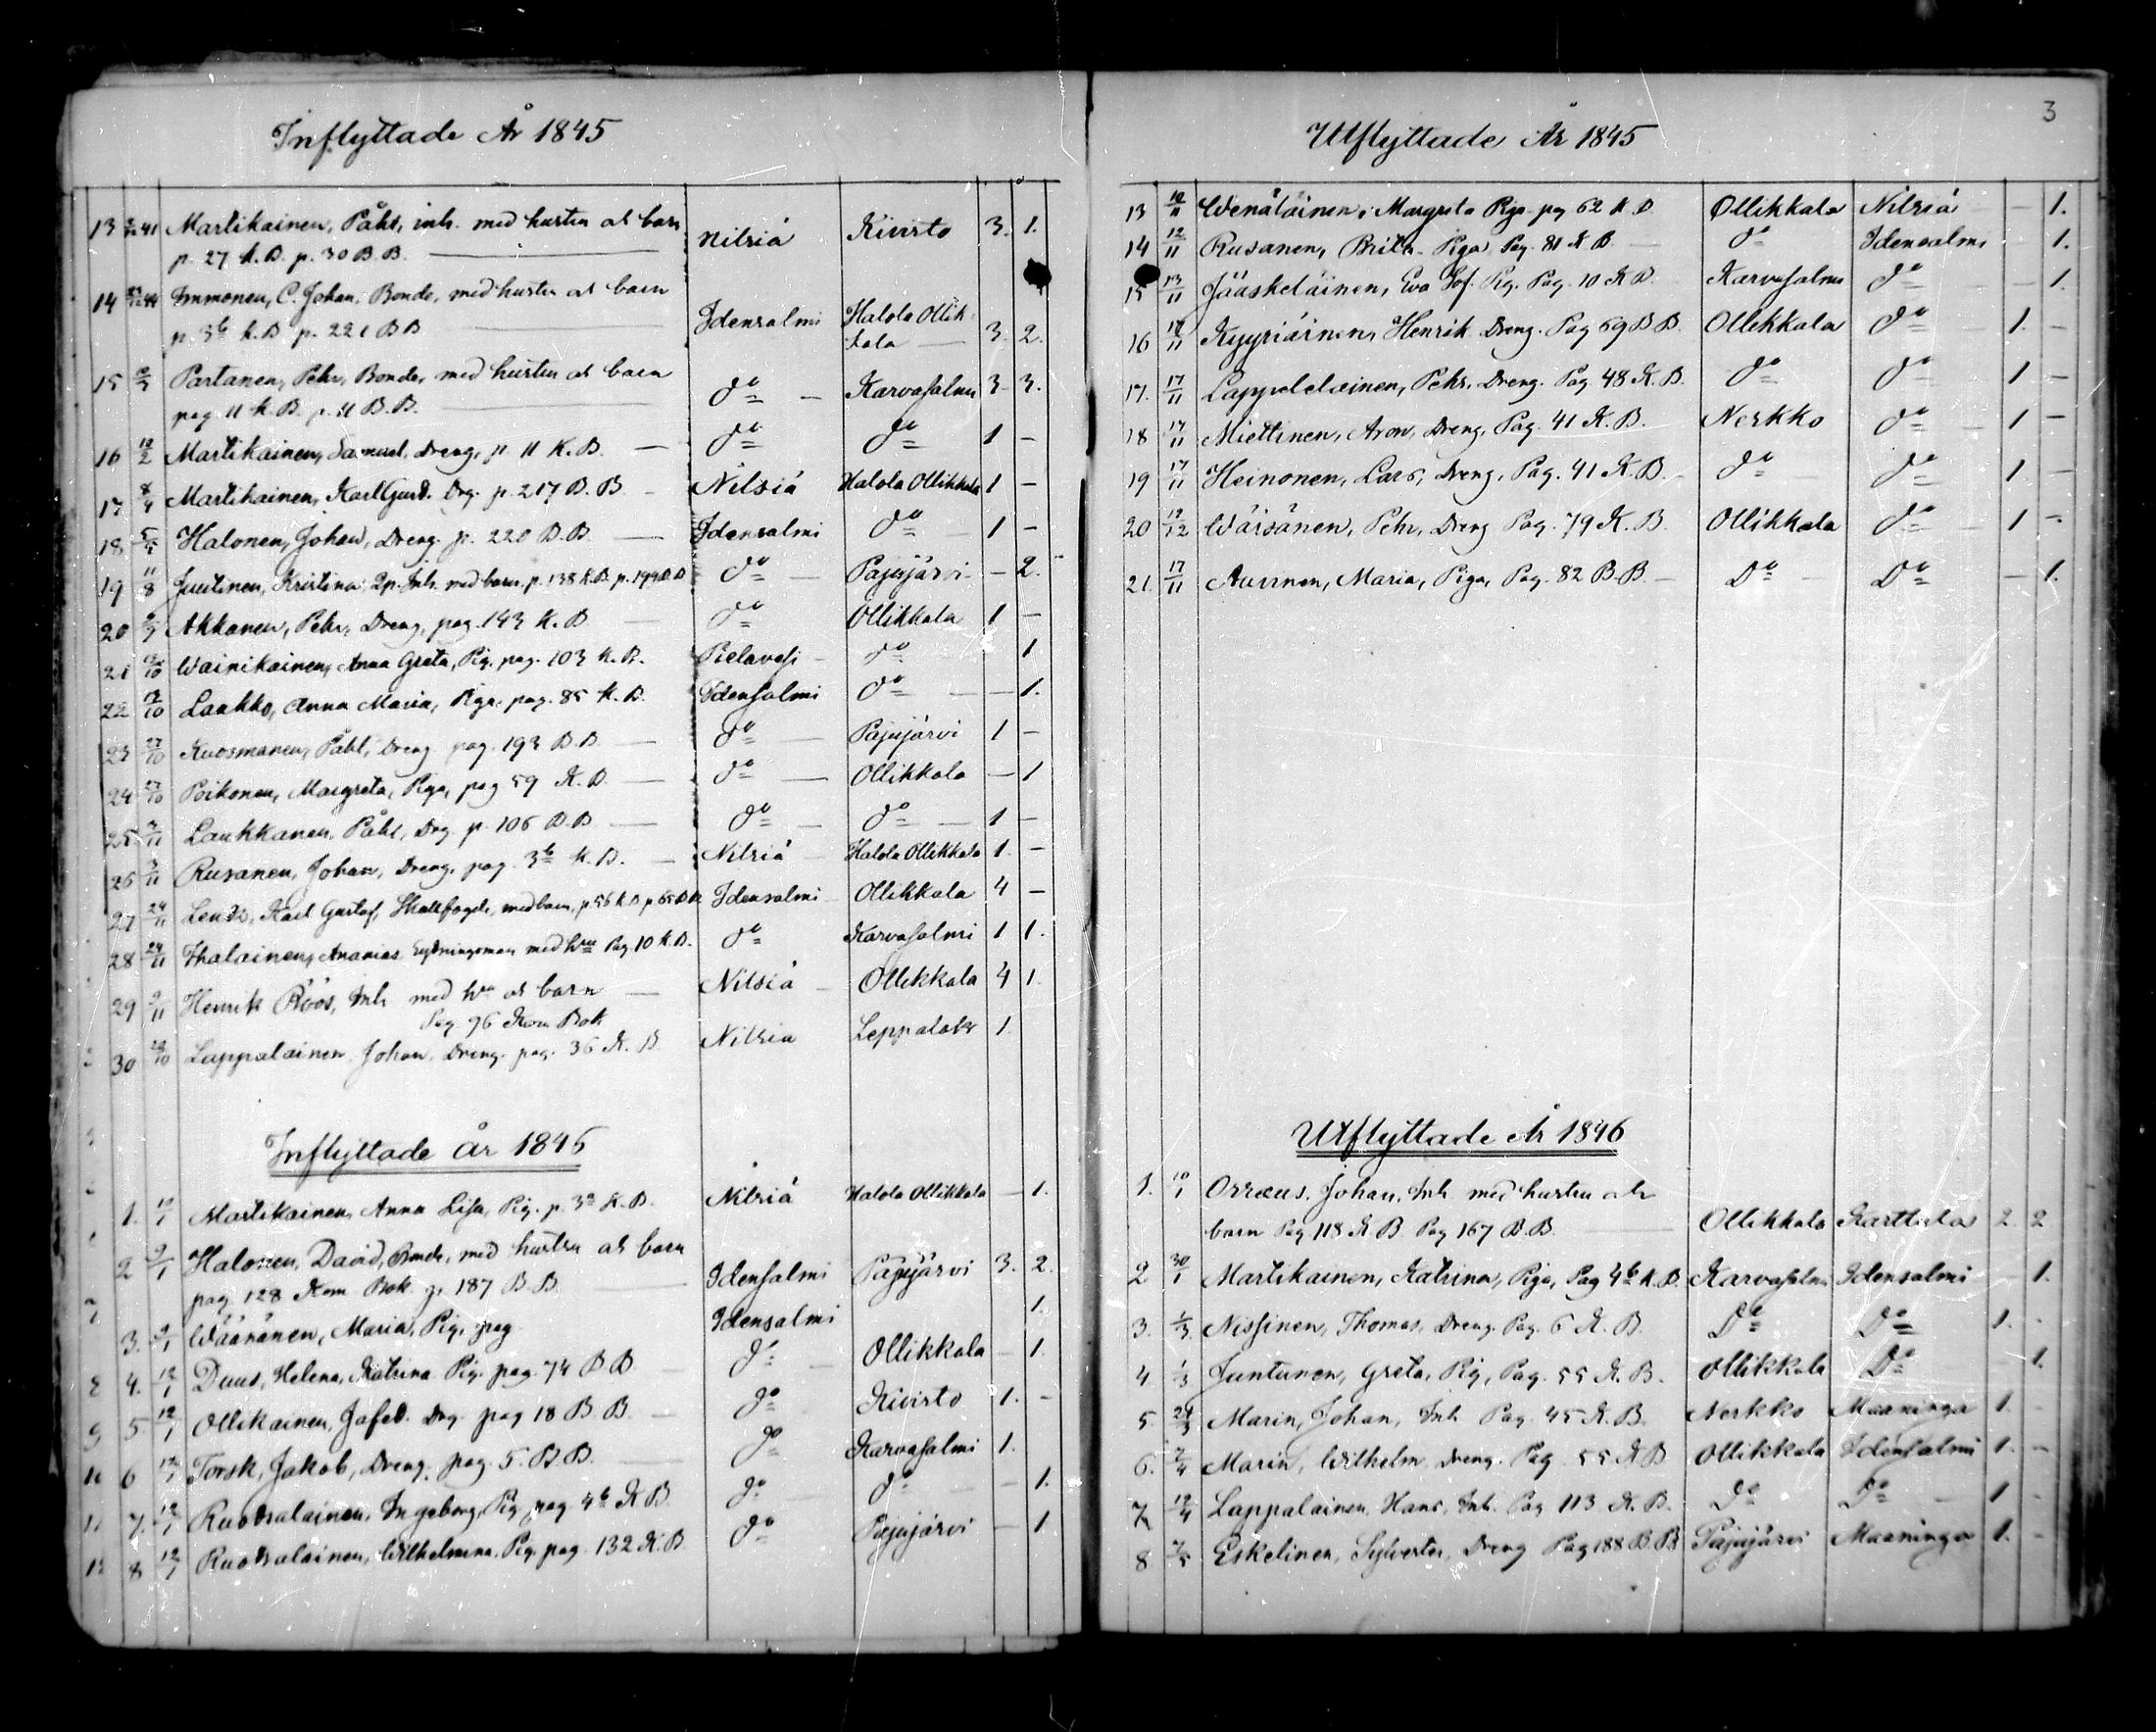 Inflyttade År 1845
13 41 Martikainen, Påhl, inh. med hustru ok barn
p. 27 K.B. p. 30 B.B. Nilsiä Kivisto 3. 1.
14 44 Immonen, C. Johan, Bonde, med hustru ok barn
p. 3b K.B p. 221 BB Idensalmi Halola Ollik-
kala 3. 2.
15 Partanen, Pehr, Bonde, med hustru ok barn
pag 11 K.B. p. 11 B.B. do Karvasalmi 3 3.
16 12/2 Martikainen, Samuel, Dreng, p. 11 K.B. do do 1 –
17 8/4 Martikainen, Karl Gust. Drg. p. 217 B.B Nilsiä Halola Ollikkala 1 –
18 Halonen, Johan, Dreng. p. 220 B.B. Idensalmi do 1 –
19 11/8 Juutinen, Kristina, Qp. Inh. med barn. p. 138 K.B. p. 199 B.B do Pajujärvi – 2.
20 Akkanen, Pehr, Dreng, pag. 143 K.B do Ollikkala 1 –
21 Wainikainen, Anna Greta, Pig. pag. 103 K.B. Pielavesi do 1
22 Laakko, Anna Maria, Piga, pag. 85 K.B. Idensalmi do – 1.
23 27/10 Kuosmanen, Påhl, Dreng pag. 193 B.B. do Pajujärvi 1 –
24 27/10 Poikonen, Margreta, Piga, pag 59 K.B. do Ollikkala – 1
25 Laukkanen, Påhl, Drg p. 106 B.B do do 1 –
26 Rusanen, Johan, Dreng, pag. 3b K.B. Nilsiä Halola Ollikkala 1. –
27 24/11 Karl Gustaf, med barn, p. 56 K.B p. 65 B.B Idensalmi Ollikkala 4 –
28 24/11 Ihalainen, Ananias med hru Pag 10 K.B. do Karvasalmi 1 1.
29 9/11 Henrik Röös, Inh med hru ok barn Nilsiä Ollikkala 4 1.
Pag 96 Kom Bok
30 Lappalainen Johan, Dreng. pag. 36 K.B Nilsiä 1.
Inflyttade år 1846
1. Martikainen, Anna Lisa, Pig. p. 3a K.B. Nilsiä Halola Ollikkala – 1.
2 9/1 Halonen, David, Bonde, med hustru ok barn
pag 128 Kom Bok p. 187 B.B. Idensalmi Pajujärvi 3. 2.
3. 9/1 Wäänänen, Maria, Pig, pag Idensalmi 1.
4. 12/1 Duus, Helena, Katrina Pig. pag. 74 B B do Ollikkala – 1.
5. 12/1 Ollikainen, Jafed. Drg. pag 18 B.B. do Kivisto 1. –
6 12/1 Torsk, Jakob, Dreng, pag. 5. B B. do Karvasalmi 1.
7. 12/1 Ruotsalainen, Ingeborg, Pig pag. 4b K B. do do – 1.
8 12/1 Ruotsalainen, Wilhelmina, Pig. pag. 132 K.B do Pajujärvi – 1
3
Utflyttade År 1845
13 Wenäläinen, Margreta Piga pag 62 K.B. Ollikkala Nilsiä – 1.
14 12/11 Rusanen, Brita Piga, Pag. 81 K B. do Idensalmi – 1.
15 13/11 Jääskeläinen, Eva Sof. Pig. Pag. 10 K B. Karvasalmi do – 1.
16 Kyyriäinen, Henrik Dreng. Pag 69 B B. Ollikkala do 1. –
17. 17/11 Lappeleteinen, Pehr, Dreng. Pag 48 K.B. do do 1 –
18 17/11 Miettinen, Aron, Dreng, Pag. 41 K.B. Nerkko do 1 –
19 17/11 Heinonen, Lars, Dreng, Pag. 41 K B. do do 1 –
20 12/12 Wäisänen, Pehr, Dreng Pag. 79 K.B. Ollikkala do 1 –
21. 17/11 Auvinen, Maria, Piga, Pag. 82 B.B. Do Do – 1.
Utflyttade År 1846
1. 10/1 Orræus, Johan, Inh med hustru ok
barn Pag 118 K B Pag 167 B.B. Ollikkala Karttula 2. 2
2 30/1 Martikainen, Katrina, Piga, Pag 4b K.B. Karvasalmi Idensalmi – 1.
3. 1/3 Nissinen, Thomas, Dreng. Pag. 6 K.B. Do Do 1. –
4 1/3 Juntunen, Greta, Pig, Pag. 55 K.B. Ollikkala Do 1.
5. 24/3 Marin, Johan, Inh Pag. 45 K.B. Nerkko Maaninga 1. –
6. Marin, Wilhelm, Dreng. Pag 55 K B Ollikkala Idensalmi 1. –
7. 12/4 Lappalainen, Hans, Inh. Pag 113 K.B. Do Do 1 –
8 7/5 Eskelinen, Sylvester, Dreng Pag 188 B.B Pajujärvi Maaninga 1. –